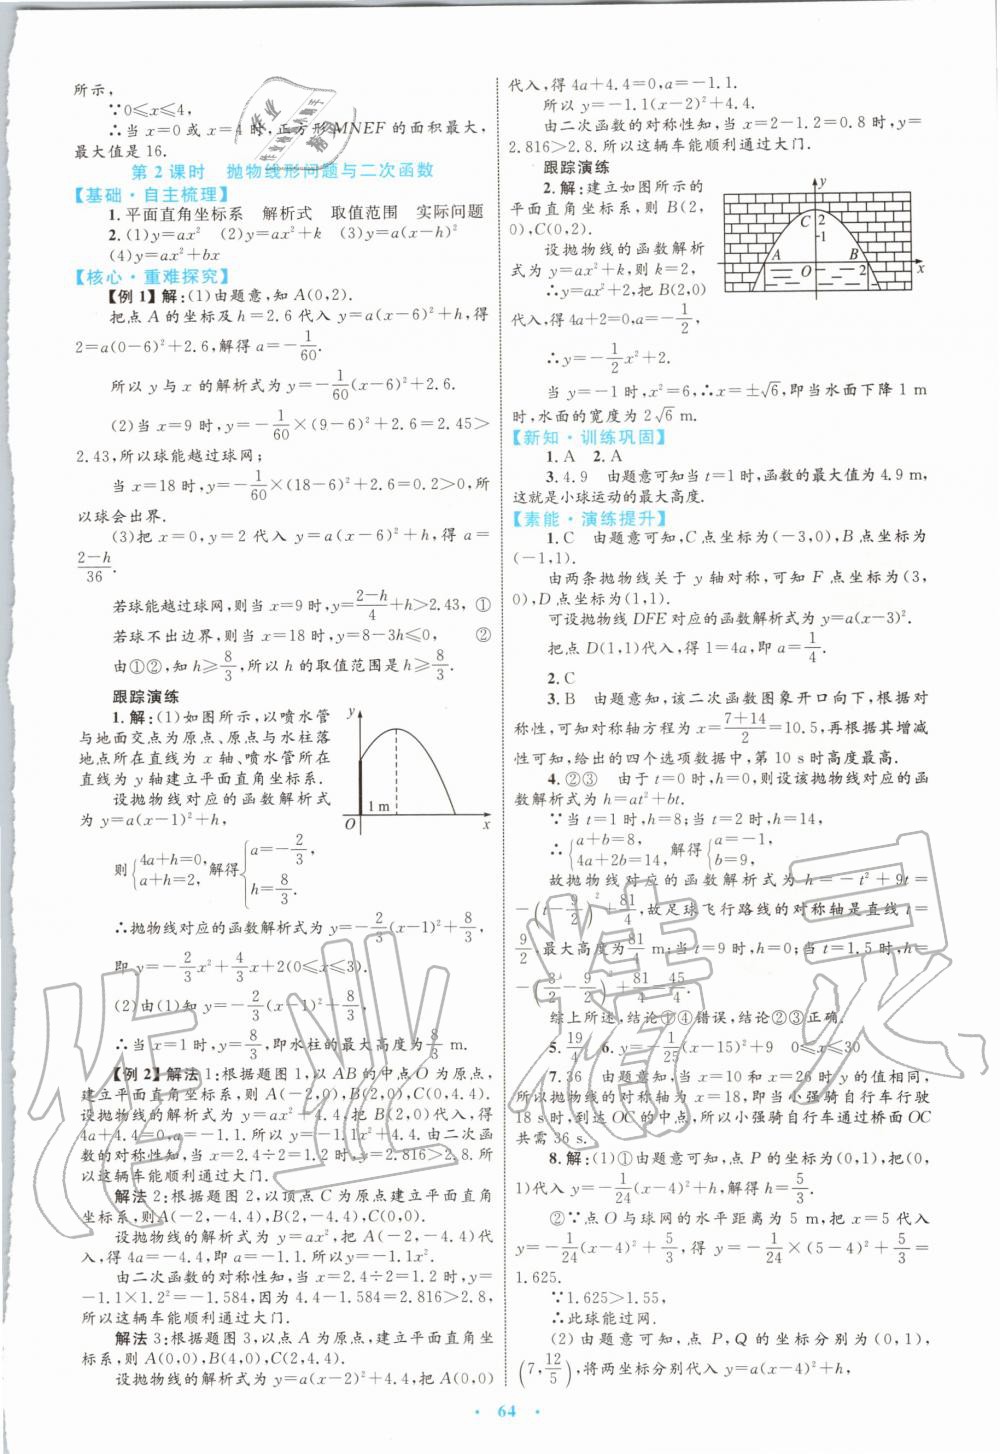 所示,
∵0≤x≤4,
∴当 x=0 或 x=4 时,正方形 MNEF 的面积最大,
最大值是 16.
第 2 课时　抛物线形问题与二次函数
【基础·自主梳理】
1.平面直角坐标系　解析式　取值范围　实际问题
2.(1)y=ax²　(2)y=ax²+k　(3)y=a(x-h)²
(4)y=ax²+bx
【核心·重难探究】
【例 1】解:(1)由题意,知 A(0,2).
把点 A 的坐标及 h=2.6 代入 y=a(x-6)²+h,得
2=a(0-6)²+2.6,解得 a=-1/60.
所以 y 与 x 的解析式为 y=-1/60(x-6)²+2.6.
(2)当 x=9 时,y=-1/60×(9-6)²+2.6=2.45>
2.43,所以球能越过球网;
当 x=18 时,y=-1/60×(18-6)²+2.6=0.2>0,所
以球会出界.
(3)把 x=0,y=2 代入 y=a(x-6)²+h,得 a=
(2-h)/36.
若球能越过球网,则当 x=9 时,y=(2-h)/4+h>2.43, ①
若球不出边界,则当 x=18 时,y=8-3h≤0, ②
由①②,知 h≥8/3,所以 h 的取值范围是 h≥8/3.
跟踪演练
1.解:(1)如图所示,以喷水管
与地面交点为原点、原点与水柱落
地点所在直线为 x 轴、喷水管所在
直线为 y 轴建立平面直角坐标系.
设抛物线对应的函数解析式
为 y=a(x-1)²+h,
y
1 m
O
x
则{4a+h=0, a+h=2, 解得{a=-2/3, h=8/3.
∴抛物线对应的函数解析式为 y=-2/3(x-1)²+8/3,
即 y=-2/3x²+4/3x+2(0≤x≤3).
(2)由(1)知 y=-2/3(x-1)²+8/3.
∴当 x=1 时,y=8/3,即水柱的最大高度为 8/3 m.
【例 2】解法 1:根据题图 1,以 AB 的中点 O 为原点,
建立平面直角坐标系,则 A(-2,0),B(2,0),C(0,4.4).
设抛物线的解析式为 y=ax²+4.4,把 B(2,0)代入,得
4a+4.4=0,a=-1.1.所以 y=-1.1x²+4.4.由二次函
数的对称性知,当 x=2.4÷2=1.2 时,y=2.816>2.8.所
以这辆车能顺利通过大门.
解法 2:根据题图 2,以顶点 C 为原点建立平面直角
坐标系,则 A(-2,-4.4),B(2,-4.4),C(0,0).
设抛物线的解析式为 y=ax²,把 A(-2,-4.4)代
入,得 4a=-4.4,即 a=-1.1.所以 y=-1.1x².
由二次函数的对称性知,当 x=2.4÷2=1.2 时,y=
-1.1×1.2²=-1.584,因为 4.4-1.584=2.816>2.8,
所以这辆车能顺利通过大门.
解法 3:根据题图 3,以点 A 为原点,建立平面直角坐
标系,则 A(0,0),B(4,0),C(2,4.4).
设抛物线的解析式为 y=a(x-2)²+4.4,把 B(4,0)
代入,得 4a+4.4=0,a=-1.1.
所以 y=-1.1(x-2)²+4.4.
由二次函数的对称性知,当 x=2-1.2=0.8 时,y=
2.816>2.8.所以这辆车能顺利通过大门.
跟踪演练
2.解:建立如图所示的
平面直角坐标系,则 B(2,
0),C(0,2).
设抛物线的函数解析
式为 y=ax²+k,则 k=2,
∴y=ax²+2,把 B(2,0)
y
C 2
1
A
B
O
2
x
代入,得 4a+2=0,a=-1/2,
∴y=-1/2x²+2.
当 y=-1 时,x²=6,∴x=±√6,即当水面下降 1 m
时,水面的宽度为 2√6 m.
【新知·训练巩固】
1.A　2.A
3.4.9　由题意可知当 t=1 时,函数的最大值为 4.9 m,
这就是小球运动的最大高度.
【素能·演练提升】
1.C　由题意可知,C 点坐标为(-3,0),B 点坐标为
(-1,1).
由两条抛物线关于 y 轴对称,可知 F 点坐标为(3,
0),D 点坐标为(1,1).
可设抛物线 DFE 对应的函数解析式为 y=a(x-3)².
把点 D(1,1)代入,得 1=4a,即 a=1/4.
2.C
3.B　由题意知,该二次函数图象开口向下,根据对
称性,可知对称轴方程为 x=(7+14)/2=10.5,再根据其增减
性可知,给出的四个选项数据中,第 10 s 时高度最高.
4.②③　由于 t=0 时,h=0,则设该抛物线对应的函
数解析式为 h=at²+bt.
∵当 t=1 时,h=8;当 t=2 时,h=14,
∴{a+b=8, 4a+2b=14, 解得{a=-1, b=9,
故抛物线对应的函数解析式为 h=-t²+9t=
-(t-9/2)²+81/4,故足球飞行路线的对称轴是直线 t=
9/2,最大高度为 81/4 m;当 t=9 时,h=0;当 t=1.5 时,h=
-(3/2-9/2)²+81/4=45/4.
综上所述,结论①④错误,结论②③正确.
5.19/4　6.y=-1/25(x-15)²+9　0≤x≤30
7.36　由题意知,当 x=10 和 x=26 时 y 的值相同,
所以抛物线的对称轴为 x=18,即当小强骑自行车行驶
18 s 时,到达 OC 的中点,所以小强骑自行车通过桥面 OC
共需 36 s.
8.解:(1)①由题意可知,点 P 的坐标为(0,1),把(0,
1)代入 y=-1/24(x-4)²+h,解得 h=5/3.
②∵点 O 与球网的水平距离为 5 m,把 x=5 代入
y=-1/24(x-4)²+5/3,得 y=-1/24×(5-4)²+5/3=
1.625.
∵1.625>1.55,
∴此球能过网.
(2)由题意可知,点 P,Q 的坐标分别为(0,1),
(7,12/5),将两坐标分别代入 y=a(x-4)²+h,
· 64 ·
作业精灵